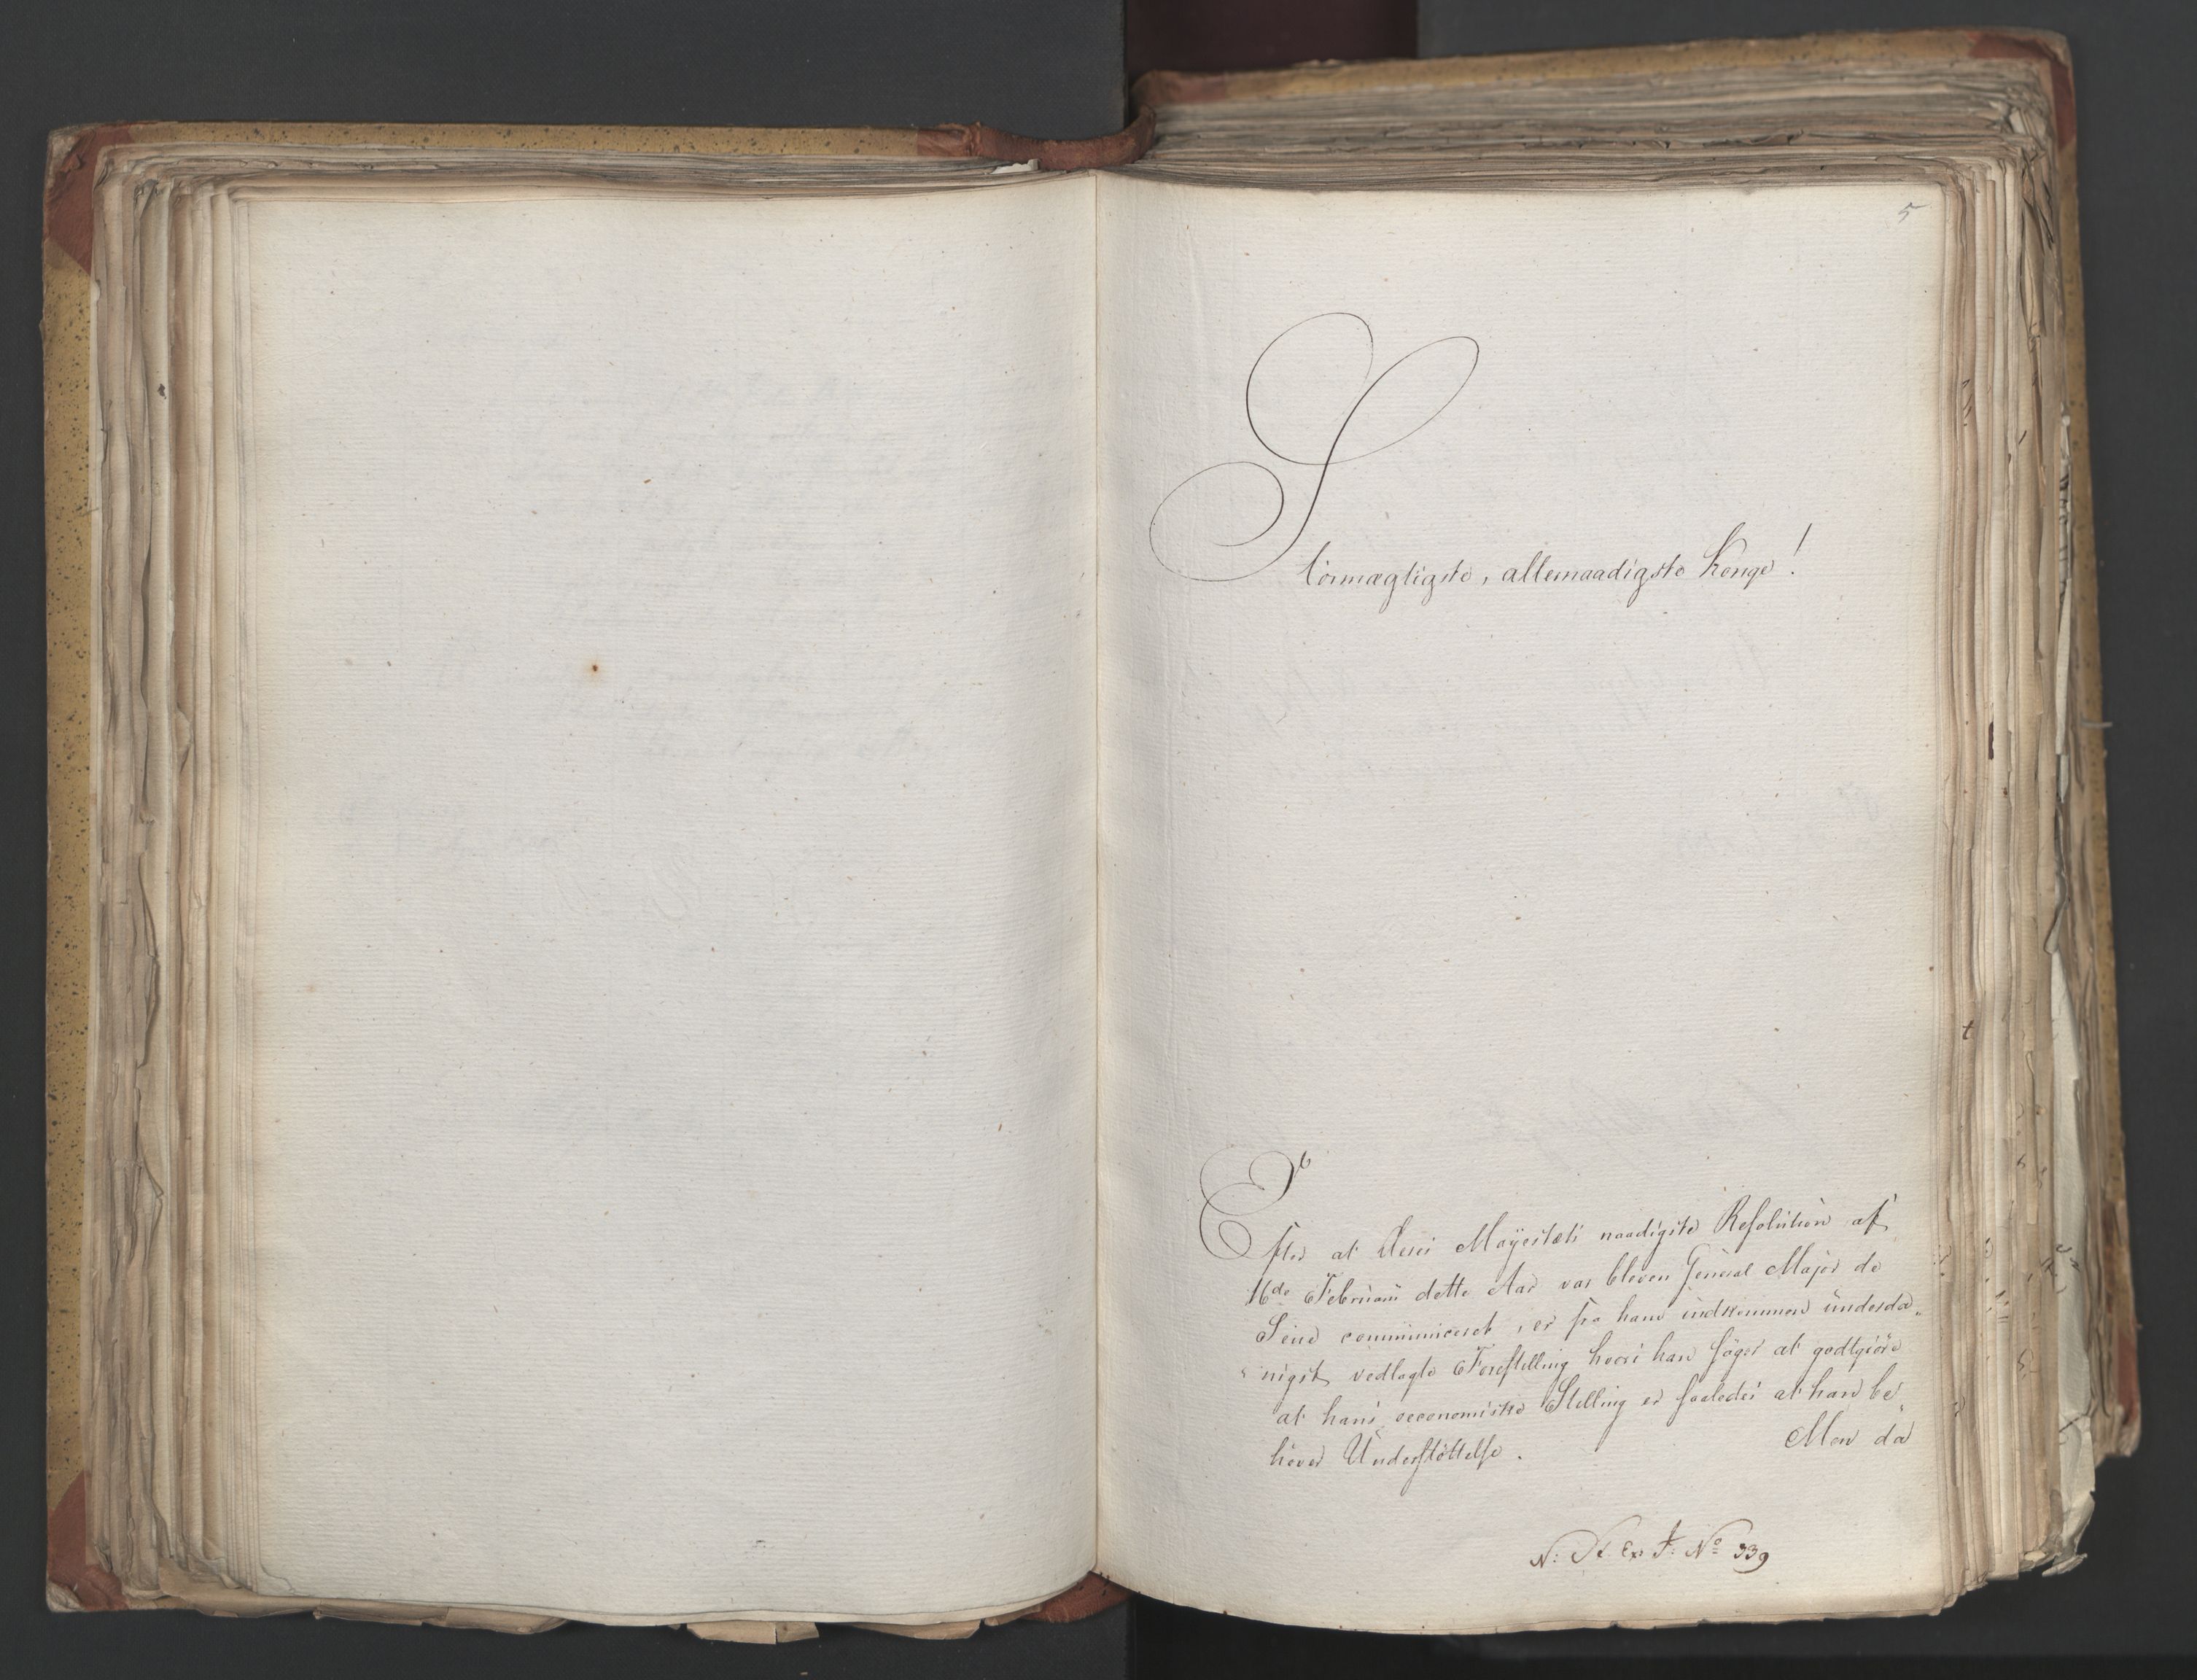 5
Stormægtigste, allernaadigste Konge!
Efter at Deres Mayestæts naadigste Resolution af
16de Februarii dette Aar var bleven General Major de
Seue communiceret, er fra ham indkommen underda„
„nigst vedlagte Forestilling hvori han søger at godtgiøre
at hans oeconomiske Stilling er saaledes at han be„
høver Understøttelse. Men da
N: St. Ex: J: No 339